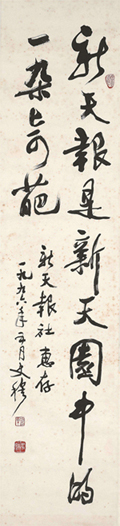 新天報是新天園中的
一朵奇葩
新天報社惠存
一九九六年元月文穆